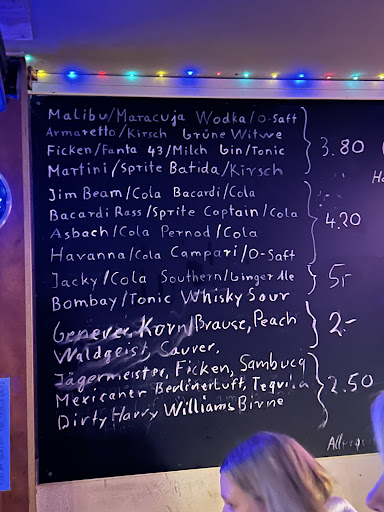 Malibu/Maracuja Wodka/O-Saft
Armaretto/Kirsch Grüne Witwe
Ficken/Fanta 43/Milch Gin/Tonic 3.80
Martini/Sprite Batida/Kirsch
Jim Beam/Cola Bacardi/Cola
Bacardi Rass/Sprite Captain/Cola
Asbach/Cola Pernod/Cola 4.20
Havanna/Cola Campari/O-Saft
Jacky/Cola Southern/Ginger Ale 5,-
Bombay/Tonic Whisky Sour
Genever, Korn/Brause, Peach 2.-
Waldgeist, Saurer,
Jägermeister, Ficken, Sambuca
Mexicaner Berliner Luft, Tequila 2.50
Dirty Harry Williams Birne